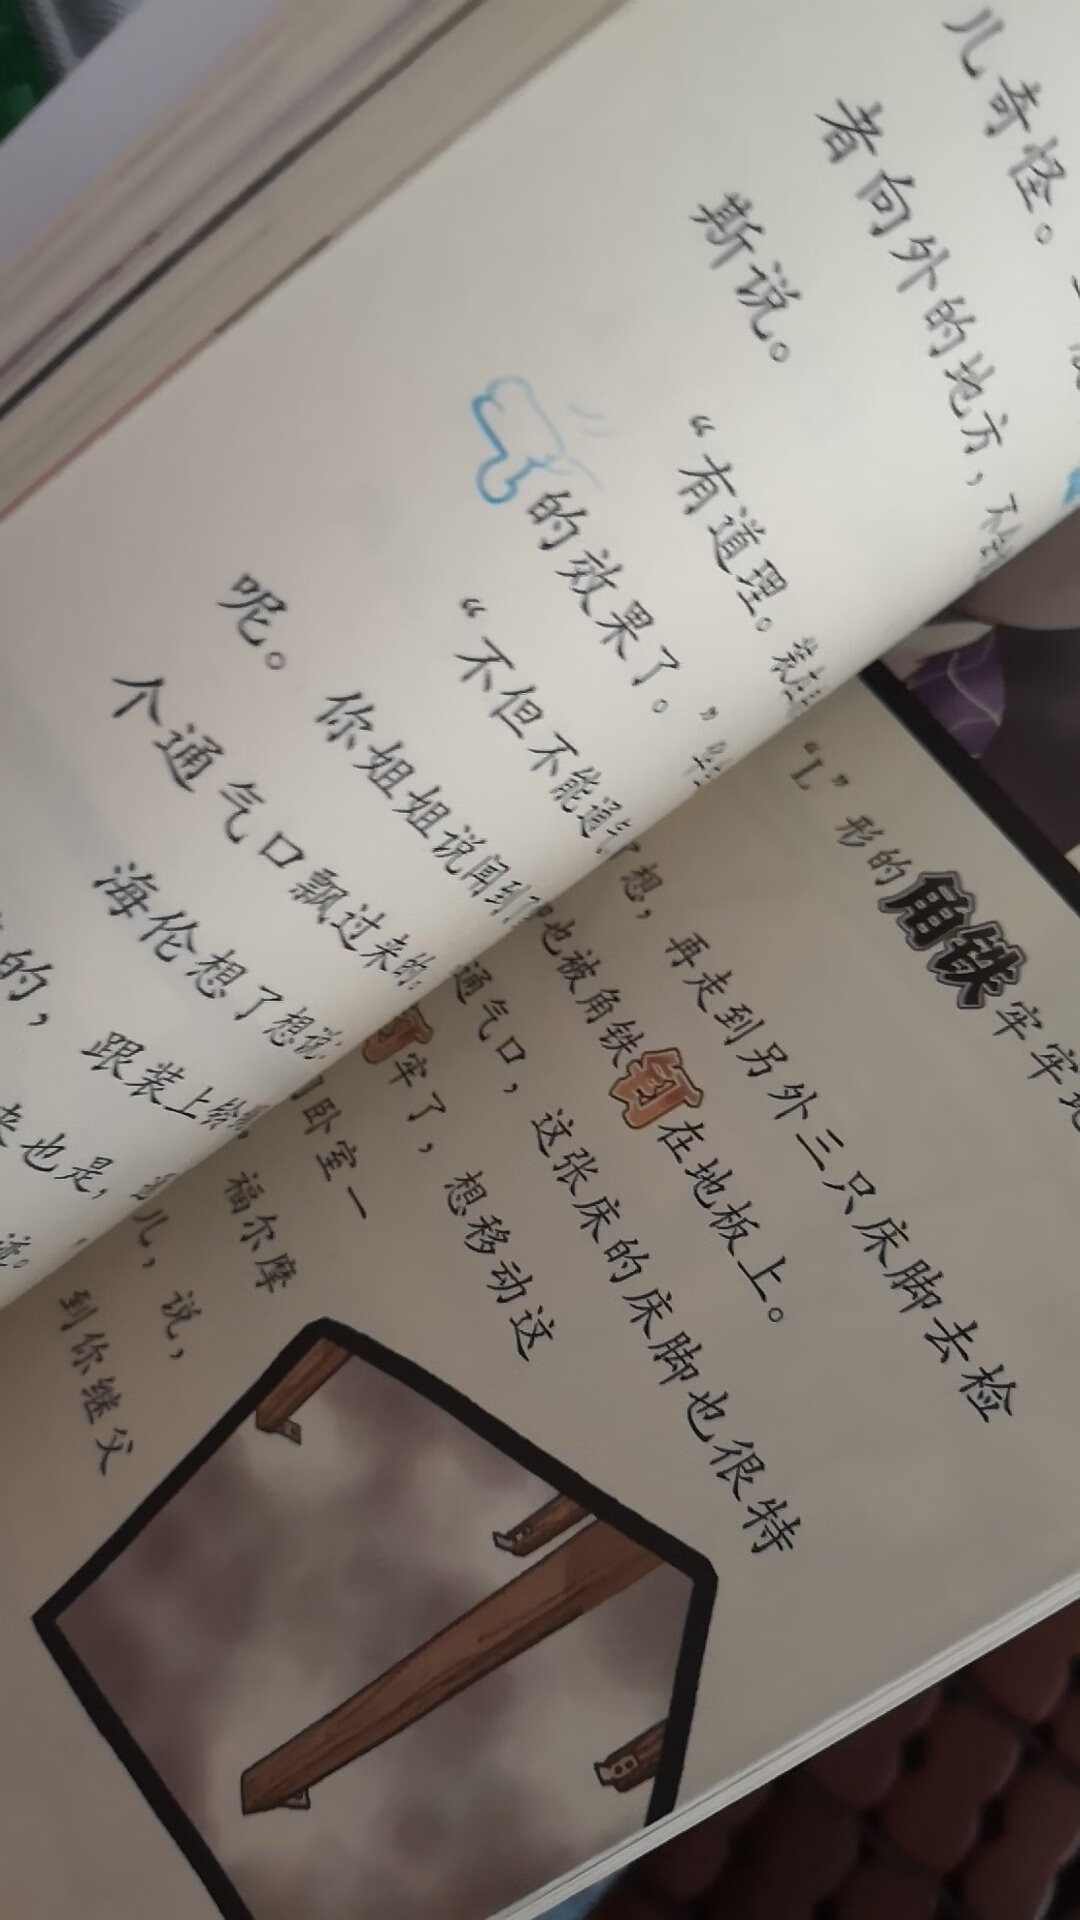 儿奇怪。
者向外的地方，不
斯说。
“有道理。装在
的效果了。”
“不但不能通
呢。你姐姐说闻到
个通气口飘过来的
海伦想了想说
的，跟装上
来也是，
“L”形的角铁牢牢地
想，再走到另外三只床脚去检
也被角铁钉在地板上。
通气口，这张床的床脚也很特
钉牢了，想移动这
卧室一
福尔摩
儿，说，
到你继父